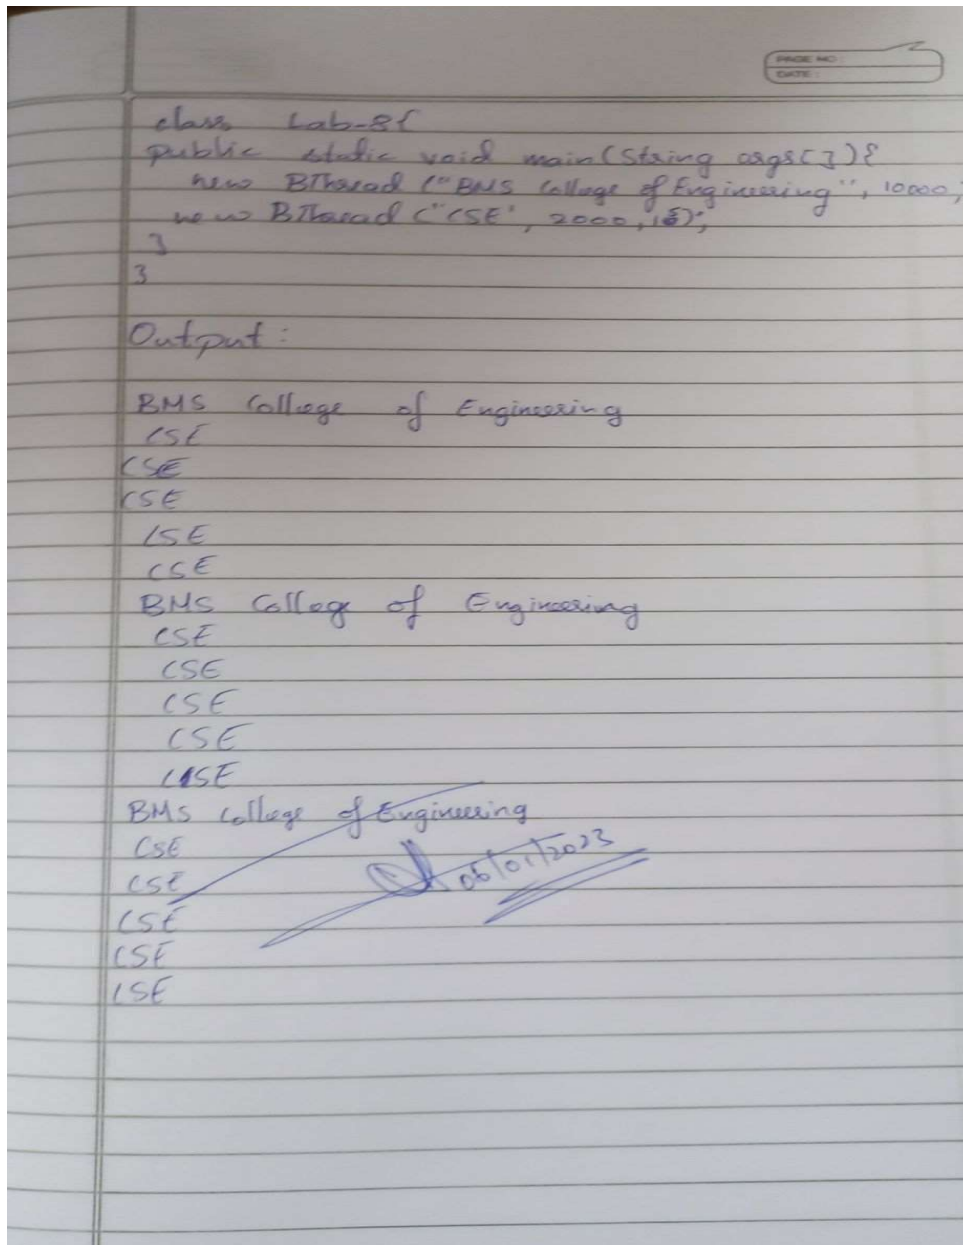 PAGE NO :
DATE :
class Lab-8{
public static void main(String args[]){
new BThread ("BMS College of Engineering", 10000,
new BThread ("CSE", 2000, 15);
}
}
Output :
BMS College of Engineering
CSE
CSE
CSE
CSE
CSE
BMS College of Engineering
CSE
CSE
CSE
CSE
CSE
BMS College of Engineering
CSE
CSE
06/01/2023
CSE
CSE
CSE